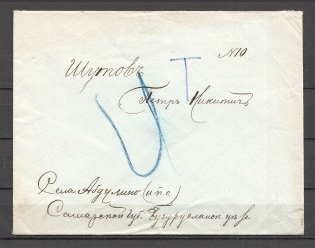 №10
Шутовъ
Т
Петръ Никитичъ
Село Абдулино (и п о)
Самарской губ. Бугурусланск. уѣзд